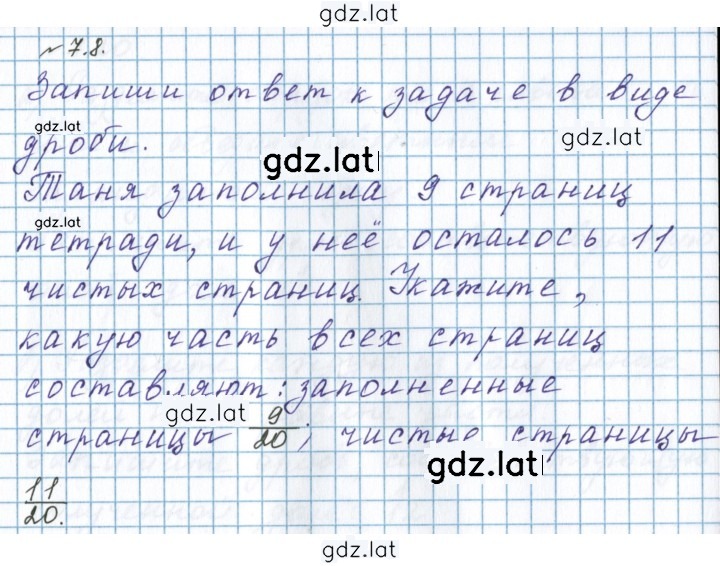 gdz.lat
№ 7.8.
Запиши ответ к задаче в виде
gdz.lat
дроби.
gdz.lat
gdz.lat
Таня заполнила 9 страниц
gdz.lat
тетради, и у неё осталось 11
чистых страниц. Укажите,
какую часть всех страниц
составляют: заполненные
gdz.lat
страницы 9/20; чистые страницы
gdz.lat
11/20.
gdz.lat